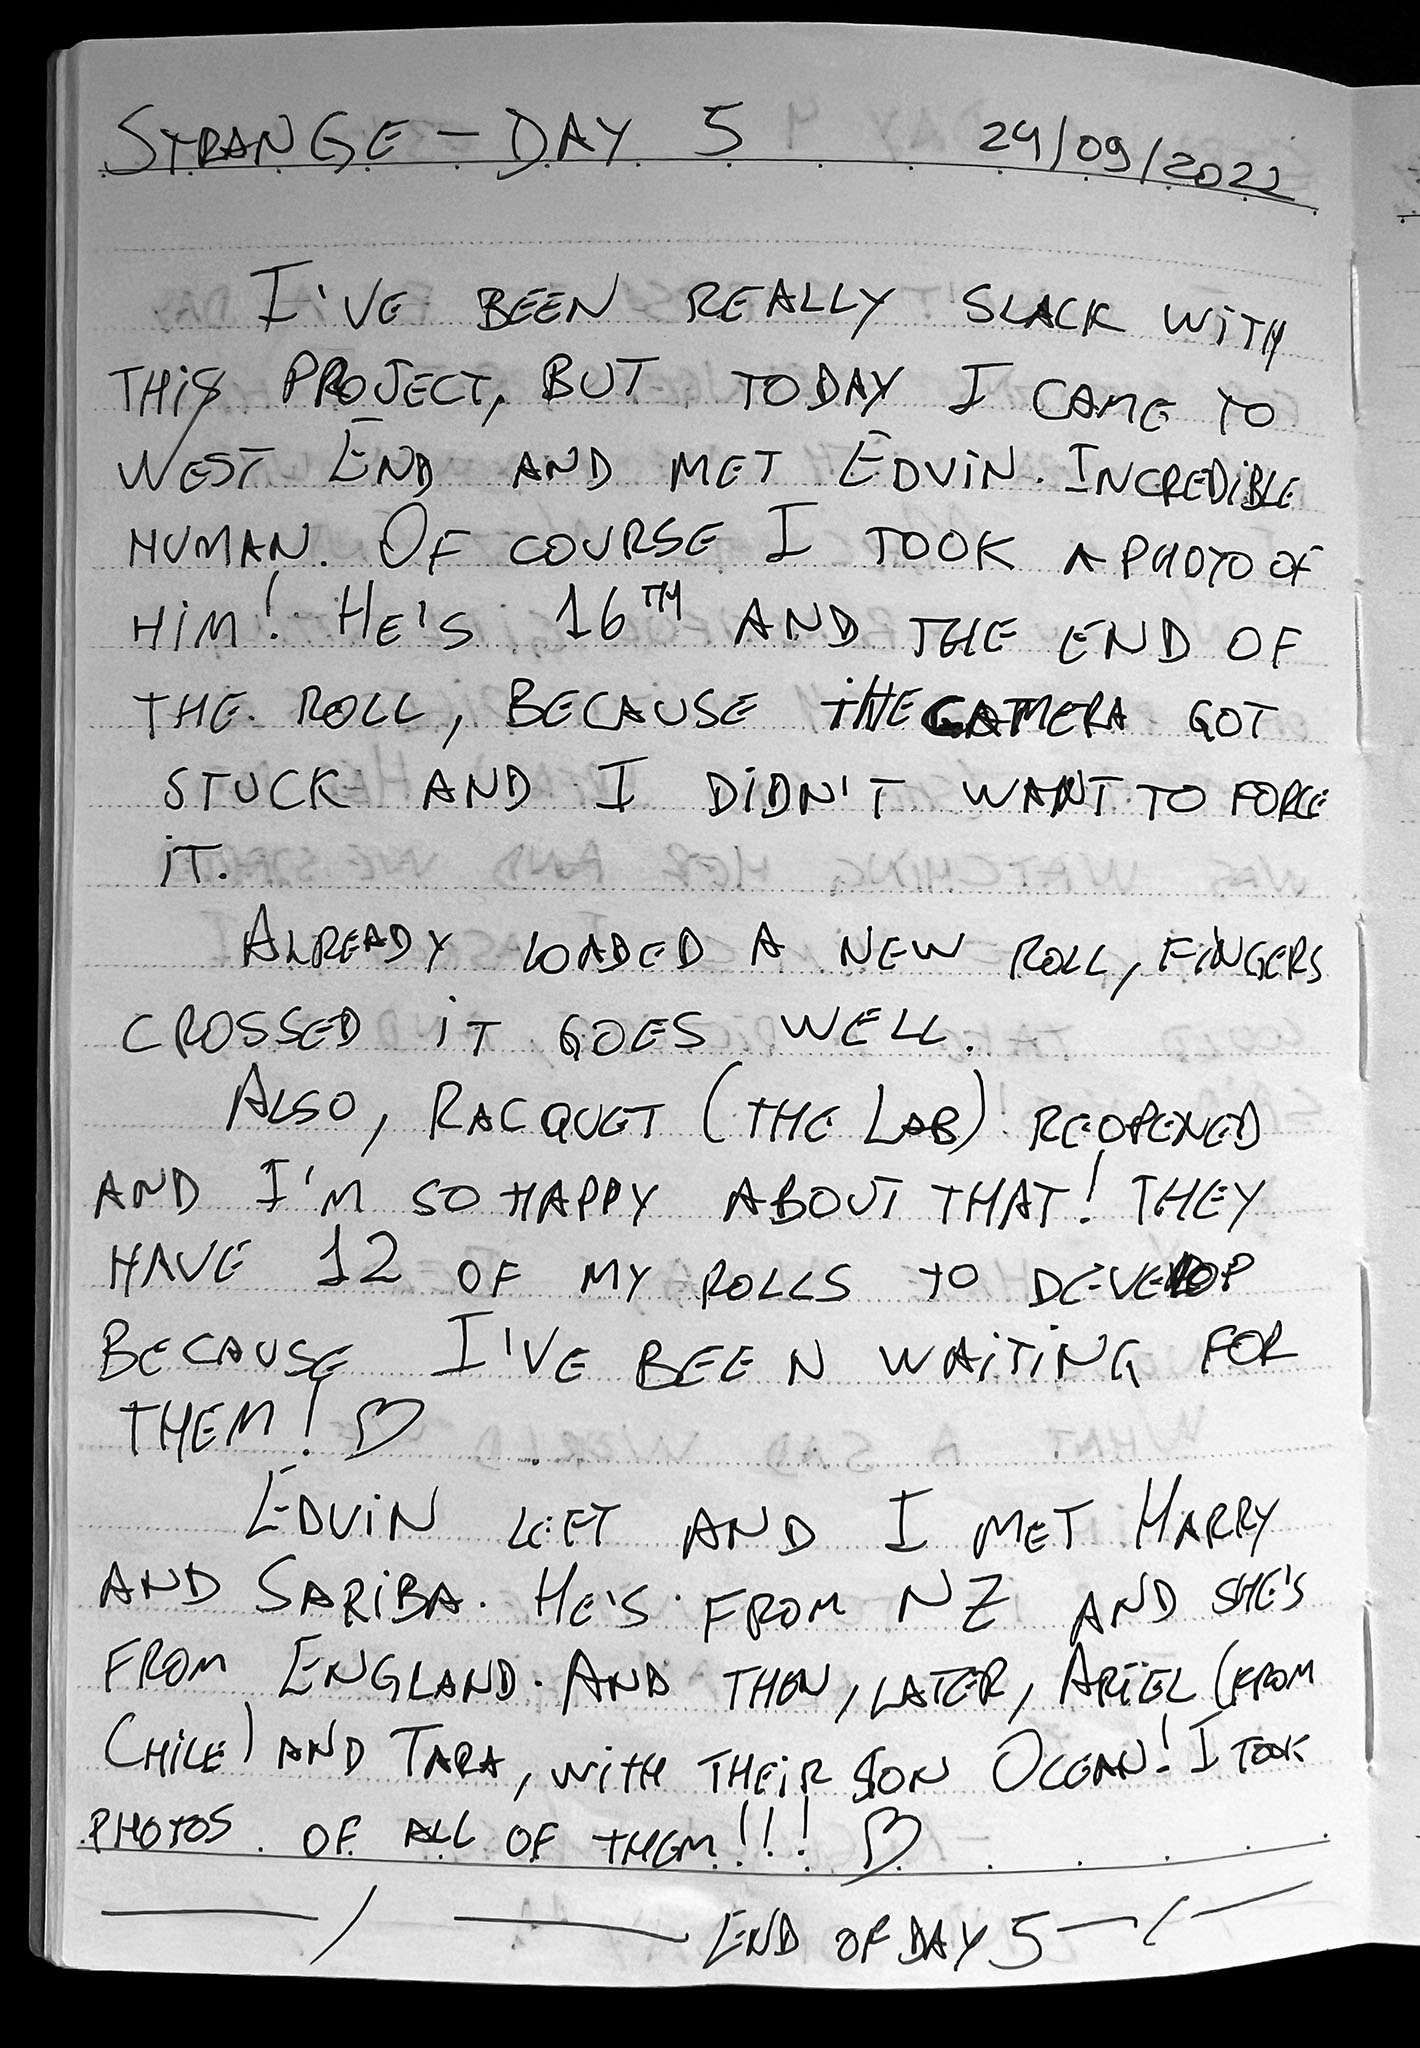 STRANGE - DAY 5 29/09/2022
I'VE BEEN REALLY SLACK WITH
THIS PROJECT, BUT TODAY I CAME TO
WEST END AND MET EDVIN. INCREDIBLE
HUMAN. OF COURSE I TOOK A PHOTO OF
HIM! HE'S 16TH AND THE END OF
THE ROLL, BECAUSE THE CAMERA GOT
STUCK AND I DIDN'T WANT TO FORCE
IT.
ALREADY LOADED A NEW ROLL, FINGERS
CROSSED IT GOES WELL.
ALSO, RACQUET (THE LAB) REOPENED
AND I'M SO HAPPY ABOUT THAT! THEY
HAVE 12 OF MY ROLLS TO DEVELOP
BECAUSE I'VE BEEN WAITING FOR
THEM! ♡
EDVIN LEFT AND I MET HARRY
AND SARIBA. HE'S FROM NZ AND SHE'S
FROM ENGLAND. AND THEN, LATER, ARIEL (FROM
CHILE) AND TARA, WITH THEIR SON OCEAN! I TOOK
PHOTOS OF ALL OF THEM!!! ♡
END OF DAY 5